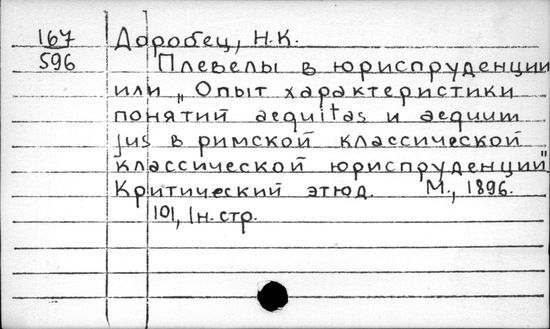 167 Доробец, Н.К.
596 Плевелы в юриспруденции
или „Опыт характеристики
понятий aequitas и aequum
jus в римской классической
классической юриспруденции"
Критический этюд. М., 1896.
101, 1н.стр.